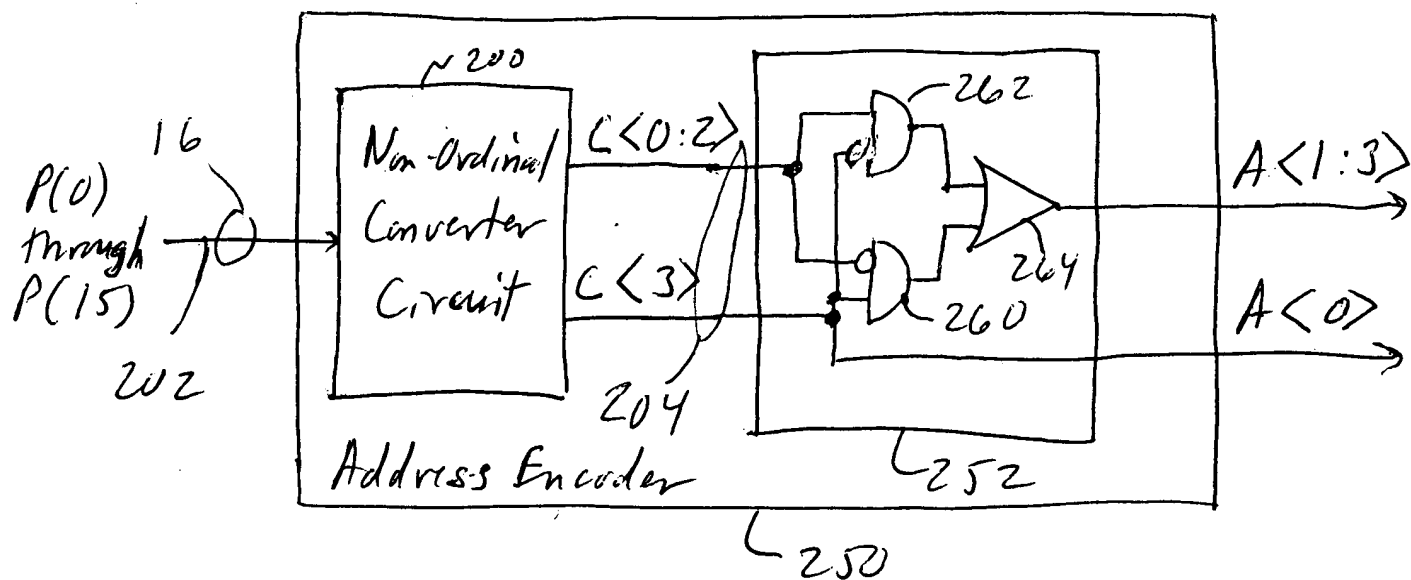 200
16
P(0)
through
P(15)
202
Non-Ordinal
Converter
Circuit
C<0:2>
C<3>
204
262
264
260
A<1:3>
A<0>
252
Address Encoder
250